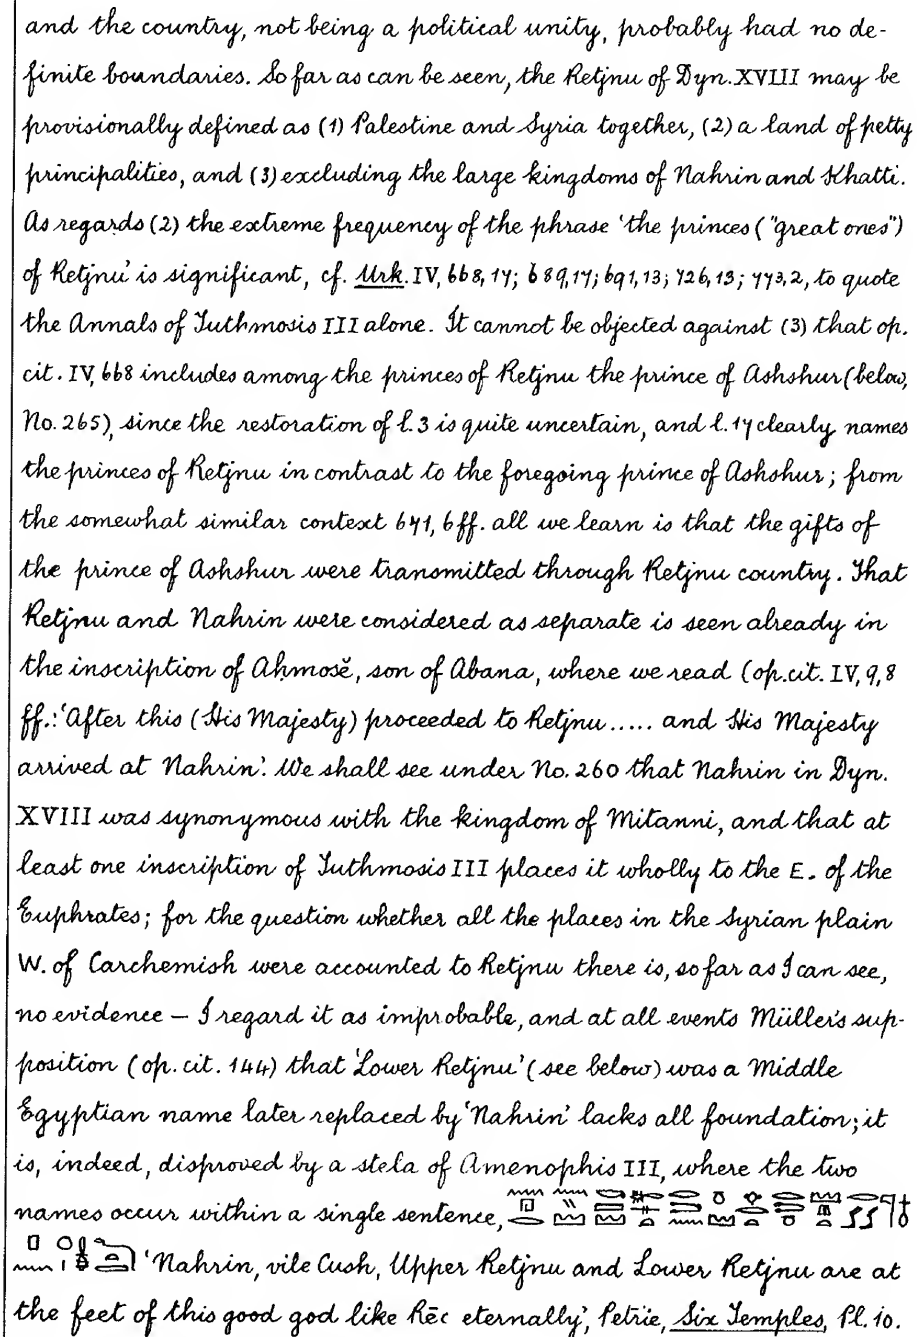 and the country, not being a political unity, probably had no de-
finite boundaries. So far as can be seen, the Retjnu of Dyn. XVIII may be
provisionally defined as (1) Palestine and Syria together, (2) a land of petty
principalities, and (3) excluding the large kingdoms of Nahrin and Khatti.
As regards (2) the extreme frequency of the phrase 'the princes ("great ones")
of Retjnu' is significant, cf. Urk. IV, 668, 17; 689, 17; 691, 13; 726, 13; 773, 2, to quote
the Annals of Tuthmosis III alone. It cannot be objected against (3) that op.
cit. IV, 668 includes among the princes of Retjnu the prince of Ashshur (below,
No. 265), since the restoration of l. 3 is quite uncertain, and l. 17 clearly names
the princes of Retjnu in contrast to the foregoing prince of Ashshur; from
the somewhat similar context 671, 6 ff. all we learn is that the gifts of
the prince of Ashshur were transmitted through Retjnu country. That
Retjnu and Nahrin were considered as separate is seen already in
the inscription of Aḥmosĕ, son of Abana, where we read (op. cit. IV, 9, 8
ff.: 'After this (His Majesty) proceeded to Retjnu ..... and His Majesty
arrived at Nahrin'. We shall see under No. 260 that Nahrin in Dyn.
XVIII was synonymous with the kingdom of Mitanni, and that at
least one inscription of Tuthmosis III places it wholly to the E. of the
Euphrates; for the question whether all the places in the Syrian plain
W. of Carchemish were accounted to Retjnu there is, so far as I can see,
no evidence — I regard it as improbable, and at all events Müller's sup-
position (op. cit. 144) that 'Lower Retjnu' (see below) was a Middle
Egyptian name later replaced by 'Nahrin' lacks all foundation; it
is, indeed, disproved by a stela of Amenophis III, where the two
names occur within a single sentence,
'Nahrin, vile Cush, Upper Retjnu and Lower Retjnu are at
the feet of this good god like Rēc eternally', Petrie, Six Temples, Pl. 10.